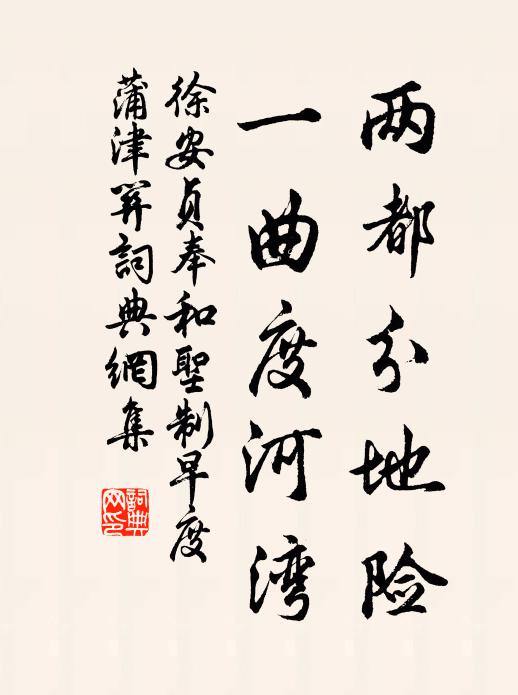 两都分地险
一曲度河湾
徐安贞奉和聖制早度
蒲津关詞典網集
詞典网印